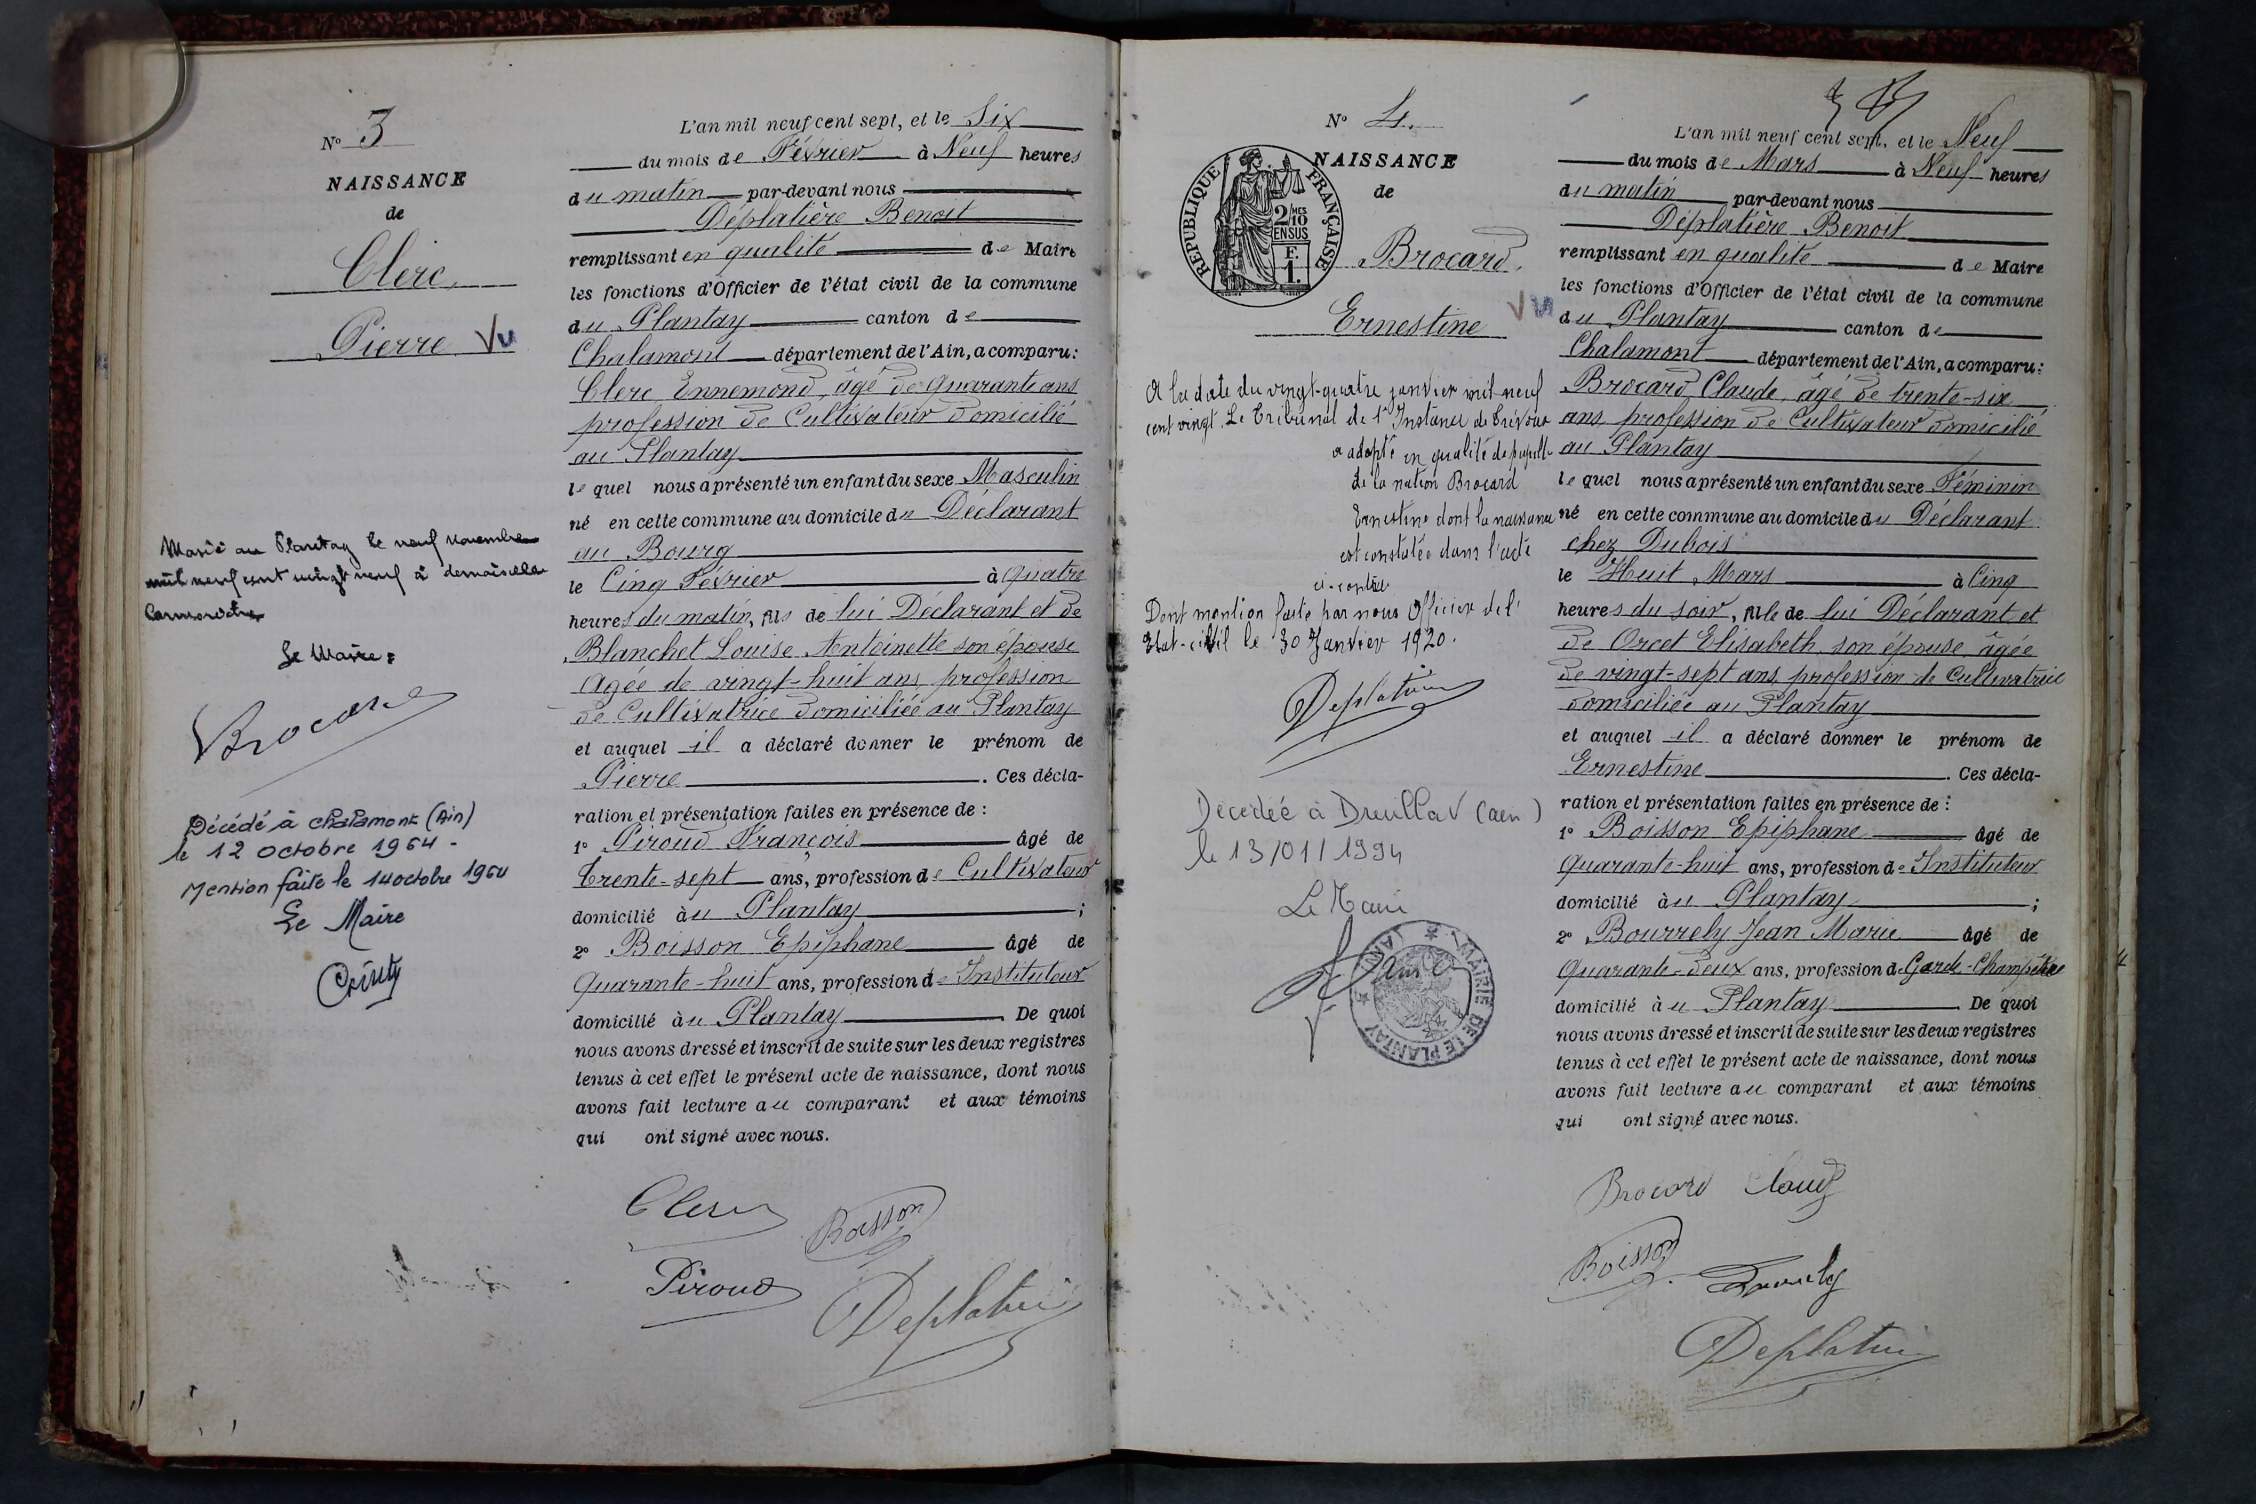 N° 3
NAISSANCE
de
Clerc
Pierre Vu
Marié au Plantay le neuf novembre
mil neuf cent vingt neuf à demoiselle
Le Maire :
Brocard
Décédé à Chalamont (Ain)
le 12 octobre 1964 -
Mention faite le 14 octobre 1964
Le Maire
L'an mil neuf cent sept, et le Six
du mois de Février à Neuf heures
du matin par-devant nous
Déplatière Benoit
remplissant en qualité de Maire
les fonctions d'Officier de l'état civil de la commune
du Plantay canton de
Chalamont département de l'Ain, a comparu :
Clerc Ennemond, âgé de quarante ans
profession de Cultivateur domicilié
au Plantay
lequel nous a présenté un enfant du sexe Masculin
né en cette commune au domicile du Déclarant
au Bourg
le Cinq Février à Quatre
heures du matin, fils de lui Déclarant et de
Blanchet Louise Antoinette son épouse
Agée de vingt-huit ans, profession
de Cultivatrice domiciliée au Plantay
et auquel il a déclaré donner le prénom de
Pierre. Ces décla-
ration et présentation faites en présence de :
1° Piroud François âgé de
Trente-sept ans, profession de Cultivateur
domicilié au Plantay ;
2° Boisson Epiphane âgé de
Quarante-huit ans, profession de Instituteur
domicilié au Plantay. De quoi
nous avons dressé et inscrit de suite sur les deux registres
tenus à cet effet le présent acte de naissance, dont nous
avons fait lecture au comparant et aux témoins
qui ont signé avec nous.
Clerc
Boisson
Piroud
Deplatière
N° 4.
NAISSANCE
de
RÉPUBLIQUE FRANÇAISE
2/MES
10
EN SUS
F.
1.
Brocard.
Ernestine Vu
A la date du vingt-quatre janvier mil neuf
cent vingt. Le Tribunal de 1e Instance de Trévoux
a adopté en qualité de pupille
de la nation Brocard
Ernestine dont la naissance
est constatée dans l'acte
ci-contre
Dont mention faite par nous Officier de l'
Etat-civil le 30 Janvier 1920.
Deplatière
Décédée à Druillat (Ain)
le 13/01/1994
Le Maire
MAIRIE DE LE PLANTAY * (AIN) *
L'an mil neuf cent sept, et le Neuf
du mois de Mars à Neuf heures
du matin par-devant nous
Déplatière Benoit
remplissant en qualité de Maire
les fonctions d'Officier de l'état civil de la commune
du Plantay canton de
Chalamont département de l'Ain, a comparu :
Brocard Claude, âgé de trente-six
ans, profession de Cultivateur domicilié
au Plantay
lequel nous a présenté un enfant du sexe Féminin
né en cette commune au domicile du Déclarant
chez Dubois
le Huit Mars à Cinq
heures du soir, fille de lui Déclarant et
de Orcet Elisabeth son épouse âgée
de vingt-sept ans, profession de Cultivatrice
domiciliée au Plantay
et auquel il a déclaré donner le prénom de
Ernestine. Ces décla-
ration et présentation faites en présence de :
1° Boisson Epiphane âgé de
Quarante-huit ans, profession de Instituteur
domicilié au Plantay ;
2° Bourrely Jean Marie âgé de
Quarante-deux ans, profession de Garde-Champêtre
domicilié au Plantay. De quoi
nous avons dressé et inscrit de suite sur les deux registres
tenus à cet effet le présent acte de naissance, dont nous
avons fait lecture au comparant et aux témoins
qui ont signé avec nous.
Brocard Claude
Boisson
Bourrely
Deplatière